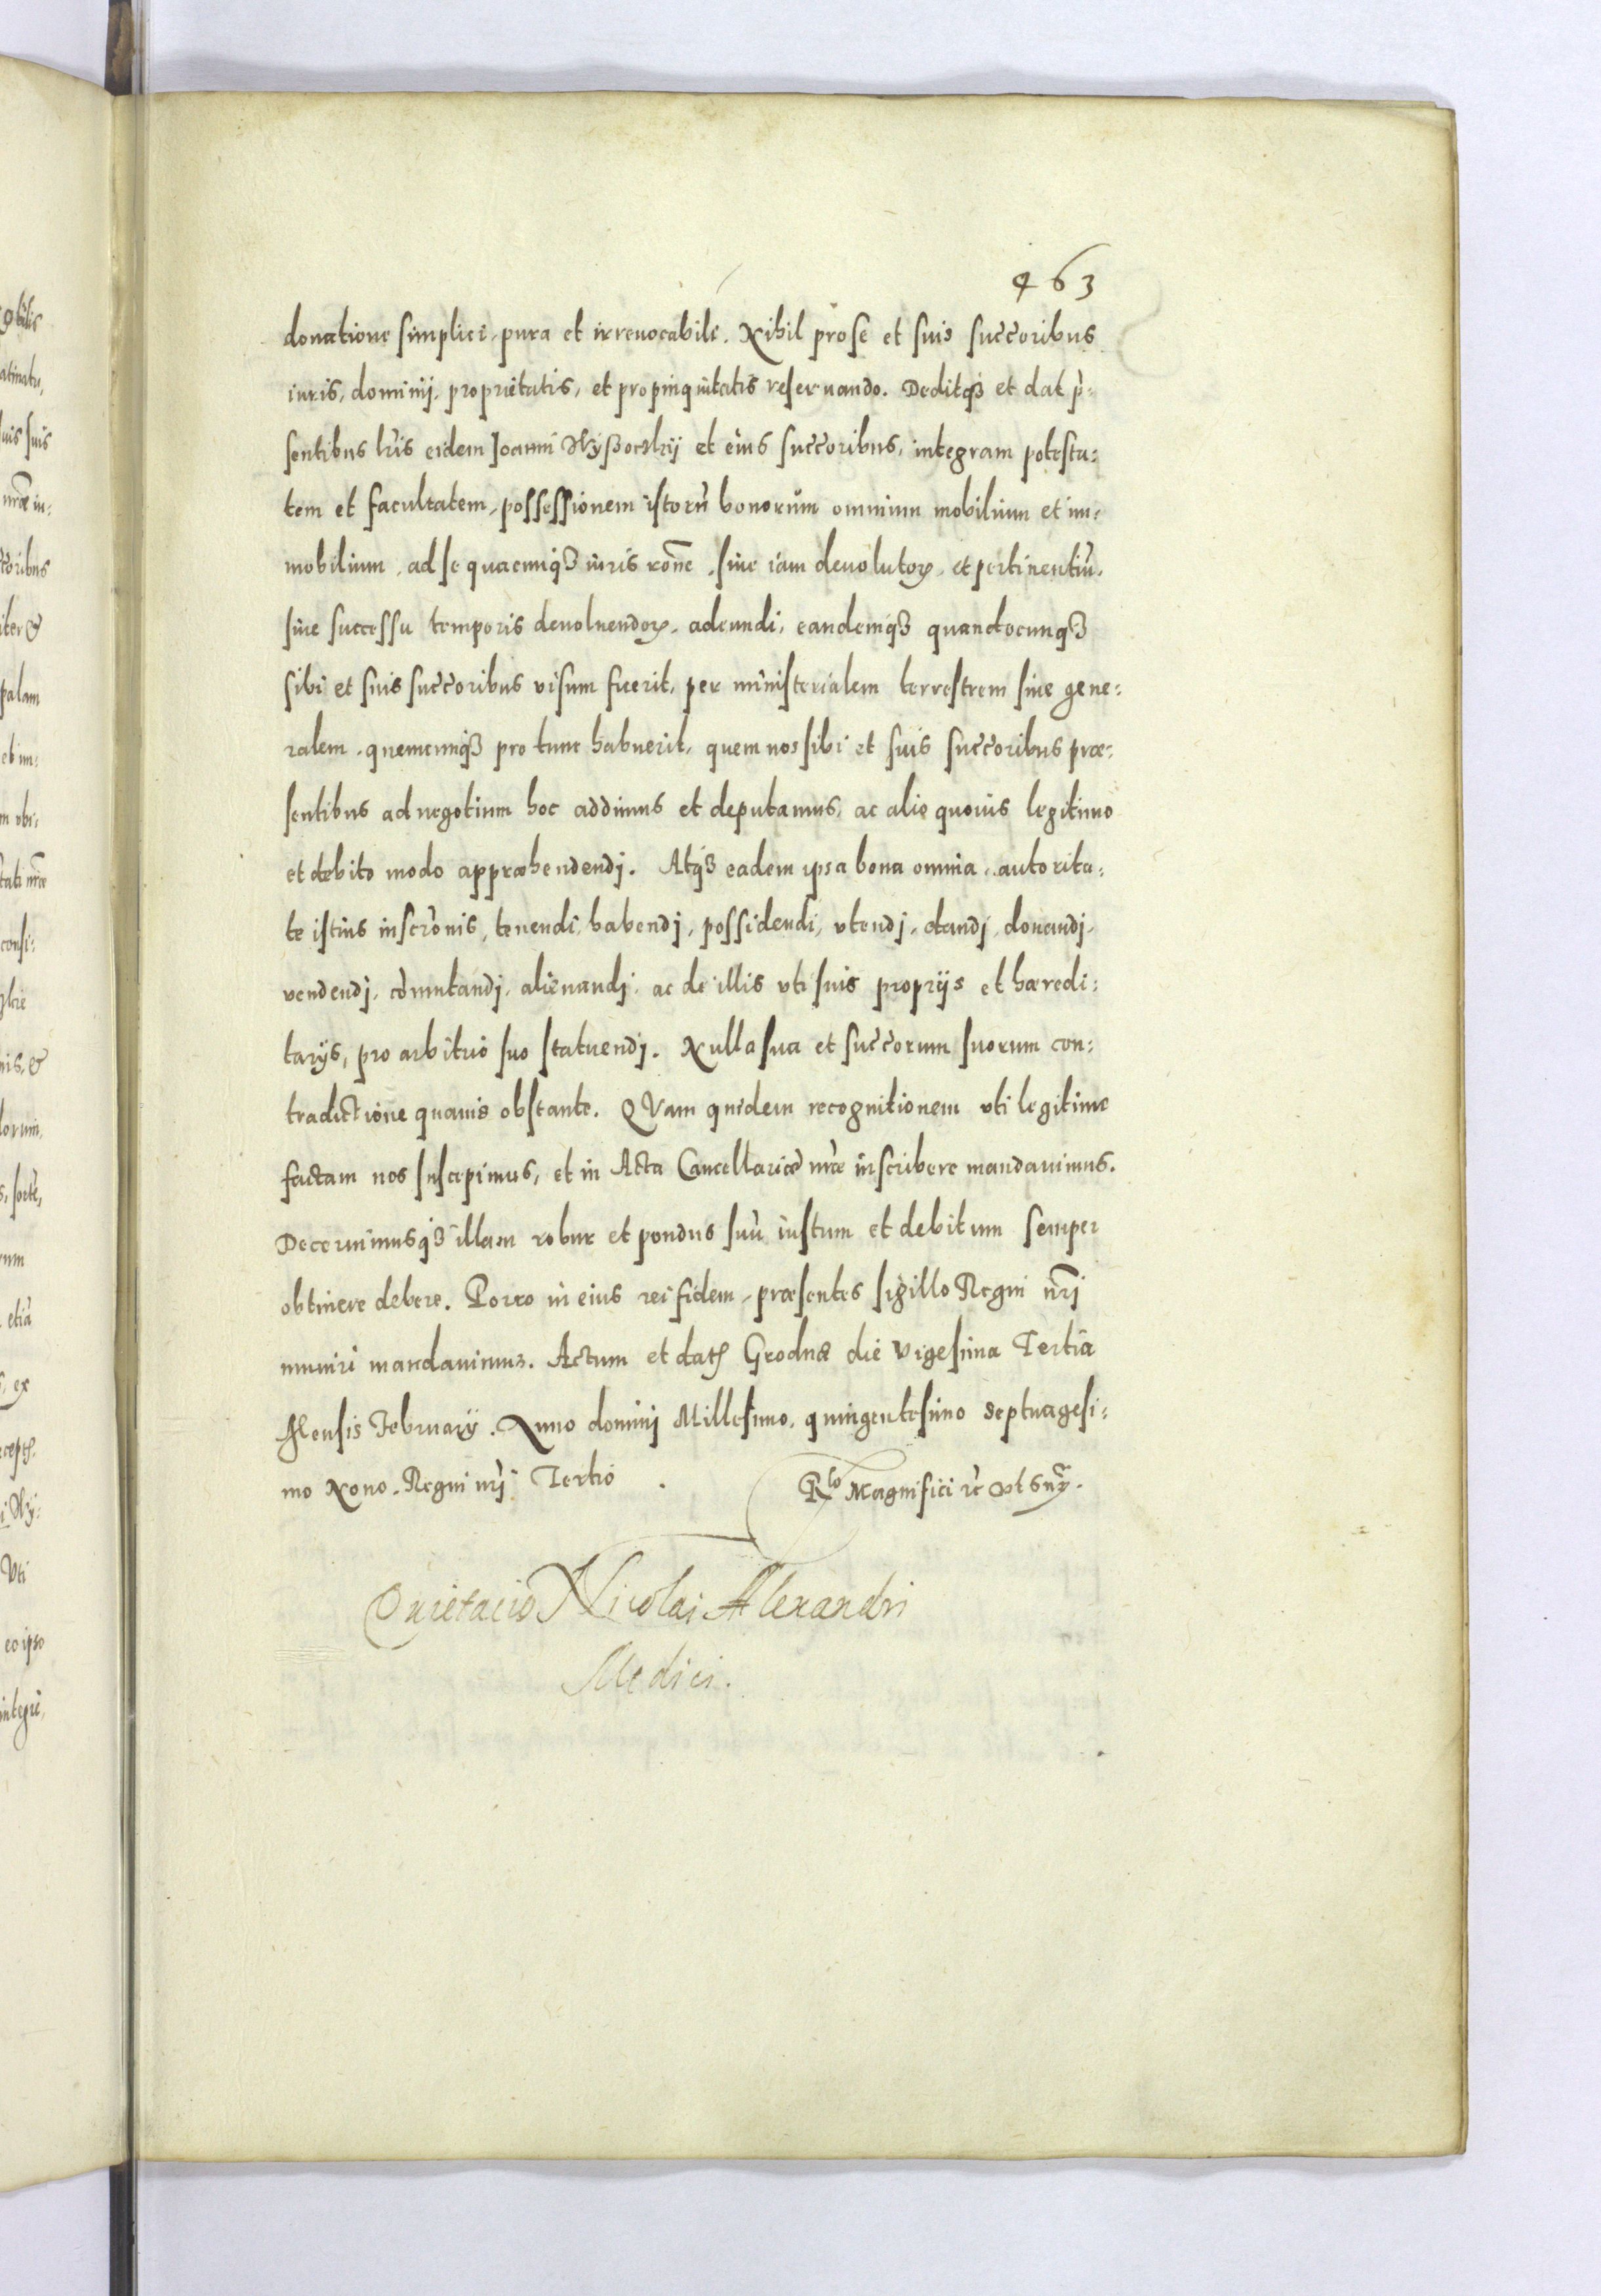 463
donatione simplici, pura et irreuocabili. Nihil pro se et suis succoribus
iuris, dominij, proprietatis, et propinquitatis reseruando. Deditq₃ et dat p̄-
sentibus lris eidem Joanni Wyssoczkij et eius succoribus, integram potesta:
tem et facultatem, possessionem istorū bonorum omnium mobilium et im:
mobilium, ad se quacunq₃ iuris rōne, siue iam deuolutoꝝ, et pertinentiū,
siue successu temporis deuoluendoꝝ, adeundi, eandemq₃ quandocunq₃
sibi et suis succoribus visum fuerit, per ministerialem terrestrem siue gene:
ralem, quemcunq₃ pro tunc habuerit, quem nos sibi et suis succoribus præ:
sentibus ad negotium hoc addimus et deputamus, ac alio quouis legitimo
et debito modo appræhendendj. Atq₃ eadem ipsa bona omnia, autorita:
te istius inscrōnis, tenendi, habendj, possidendi, vtendj, dandj, donandj,
vendendj, cōmutandj, alienandj, ac de illis vti suis proprijs et hæredi:
tarijs, pro arbitrio suo statuendj. Nulla sua et succorum suorum con:
tradictione quauis obstante. QVam quidem recognitionem vti legitime
factam nos suscepimus, et in Acta Cancellariæ nr̄æ inscribere mandauimus.
Decernimusq₃ illam robur et pondus suū iustum et debitum semper
obtinere debere. Porro in eius rei fidem, præsentes sigillo Regni nr̄j
muniri mandauimus. Actum et datꝭ Grodnæ die Vigesima Tertia
Mensis February. Anno dominj Millesimo, quingentesimo Septuagesi:
mo Nono. Regni nr̄j Tertio.
Rlo Magnifici rc̄ vt sup̄.
Quietacio Nicolai Alexandri
Medici.